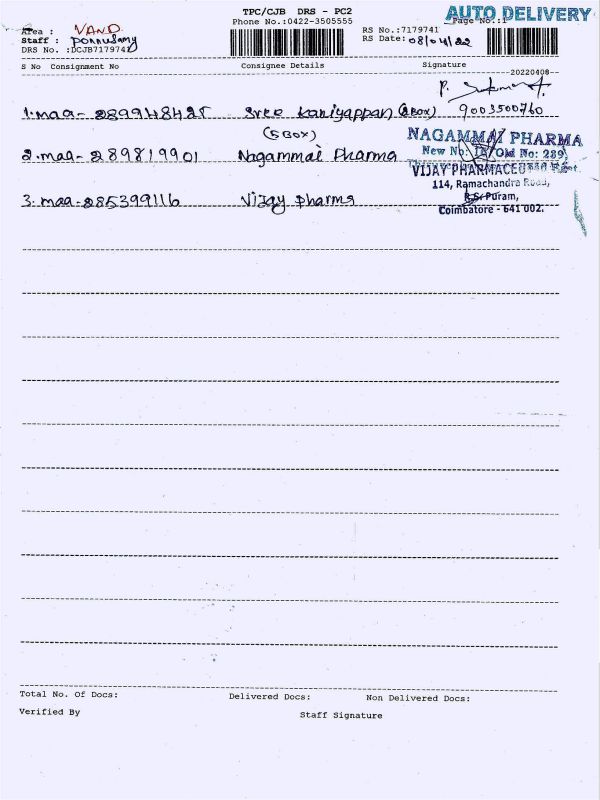 TPC/CJB DRS - PC2
AUTO DELIVERY
Phone No.:0422-3505555
Page No.:1
Area : VAND
RS No.:7179741
Staff : Ponnusamy
RS Date: 08/04/22
DRS No. :DCJB7179741
S No Consignment No Consignee Details Signature
20220408
1. maa- 289948425 Sree Kaniyappan (2 Box) 9003500760
(5 BOX)
NAGAMMAI PHARMA
New No: Old No: 289,
2. maa- 289819901 Nagammai Pharma
VIJAY PHARMACEUTICALS
114, Ramachandra Road,
3. maa- 285399116 Vijay Pharma
R.S. Puram,
Coimbatore - 641 002.
Total No. Of Docs: Delivered Docs: Non Delivered Docs:
Verified By Staff Signature